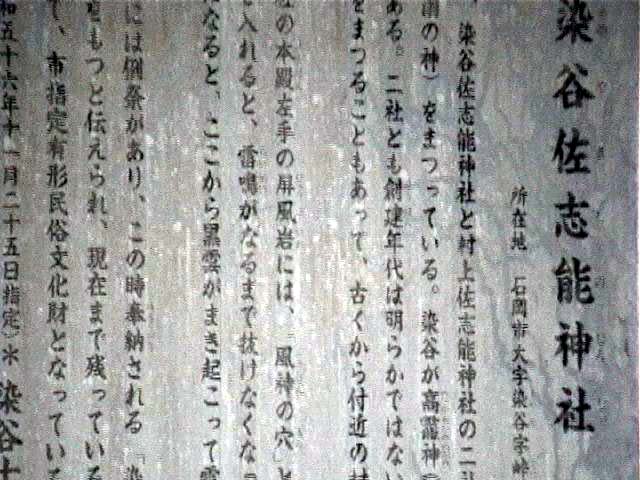 染谷佐志能神社
所在地　石岡市大字染谷字峠
染谷佐志能神社と村上佐志能神社の二社
の神）をまつっている。染谷が高龗神
ある。二社とも創建年代は明らかではない
をまつることもあって、古くから付近の村
の本殿左手の屏風岩には、「風神の穴」と
入れると、雷鳴がなるまで抜けなくな
なると、ここから黒雲がまき起こって雷
には例祭があり、この時奉納される「染
をもつと伝えられ、現在まで残っている
て、市指定有形民俗文化財となっている
和五十六年十一月二十五日指定）＊染谷十